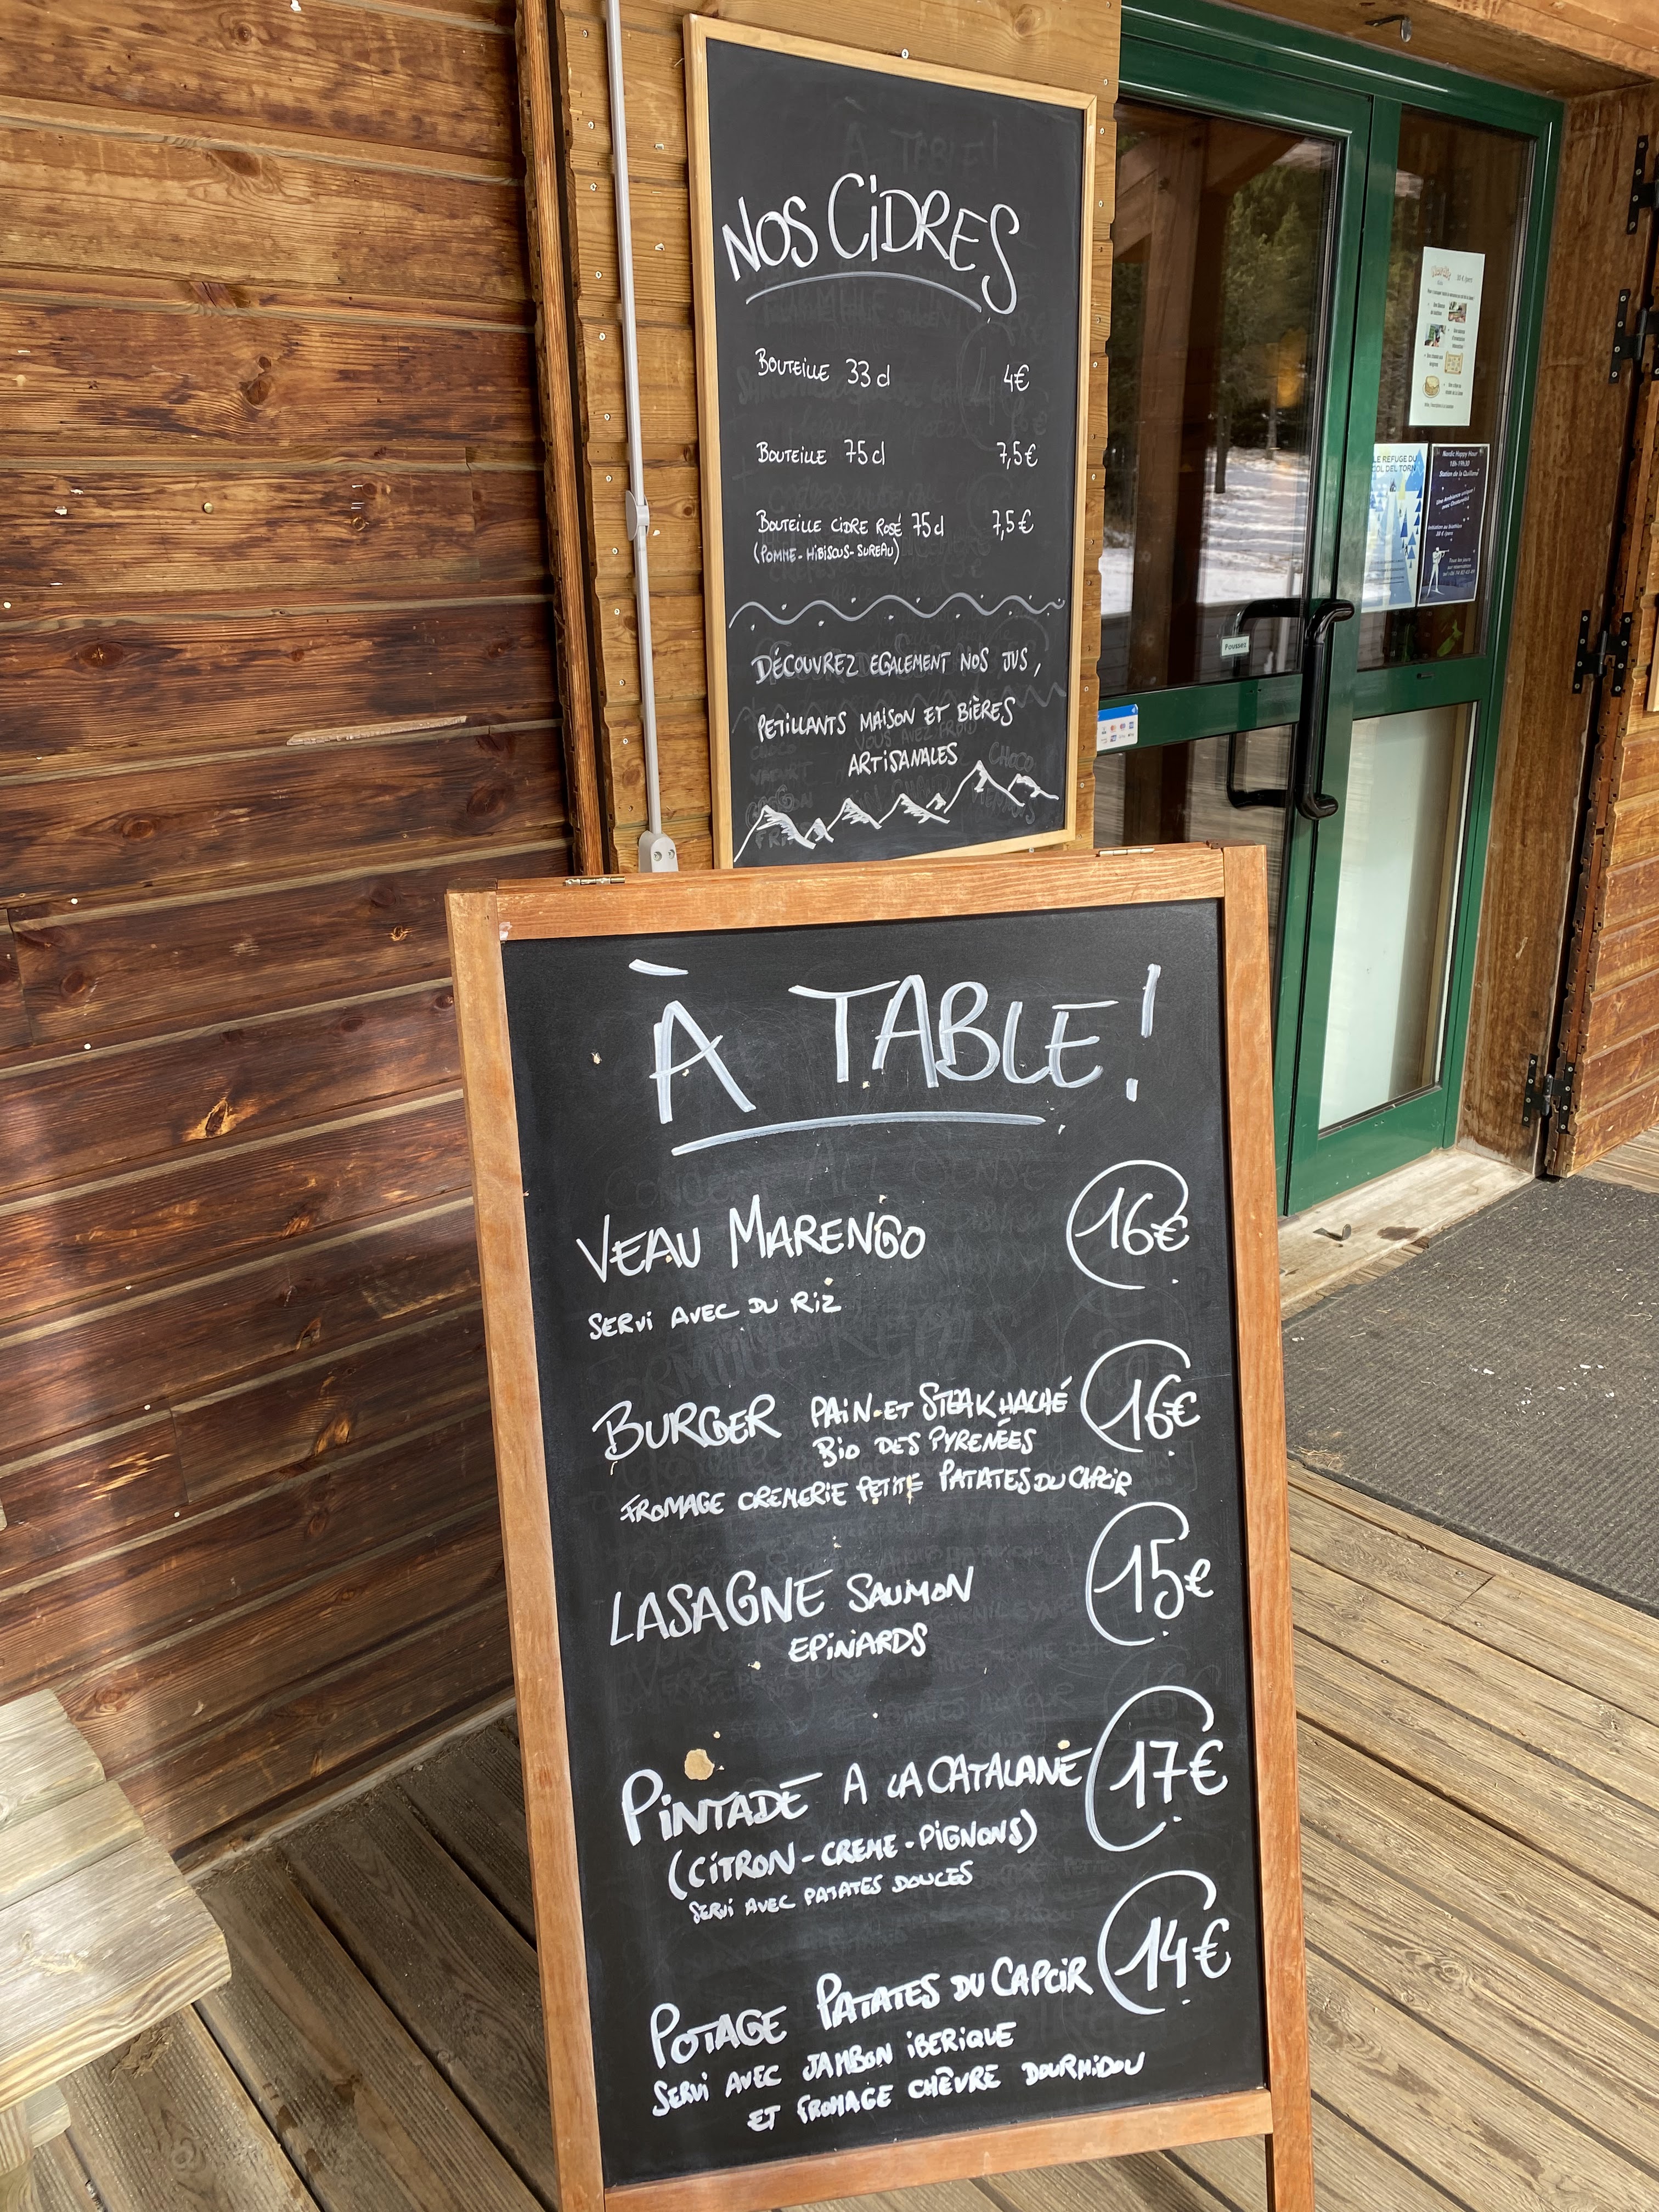 NOS CIDRES
BOUTEILLE 33 cl 4€
BOUTEILLE 75 cl 7,5€
BOUTEILLE CIDRE ROSÉ 75 cl 7,5€
(POMME-HIBISCUS-SUREAU)
DÉCOUVREZ EGALEMENT NOS JUS,
PETILLANTS MAISON ET BIÈRES
ARTISANALES
À TABLE!
VEAU MARENGO 16€
SERVI AVEC DU RIZ
BURGER PAIN ET STEAK HACHÉ 16€
BIO DES PYRENÉES
FROMAGE CREMERIE PETITE PATATES DU CAPCIR
LASAGNE SAUMON 15€
EPINARDS
PINTADE A LA CATALANE 17€
(CITRON-CREME-PIGNONS)
SERVI AVEC PATATES DOUCES
POTAGE PATATES DU CAPCIR 14€
SERVI AVEC JAMBON IBERIQUE
ET FROMAGE CHÈVRE DOURMIDOU
LE REFUGE DU
COL DEL TORN
Nordic Happy Hour
18h-19h30
Station de la Quillane
Poussez